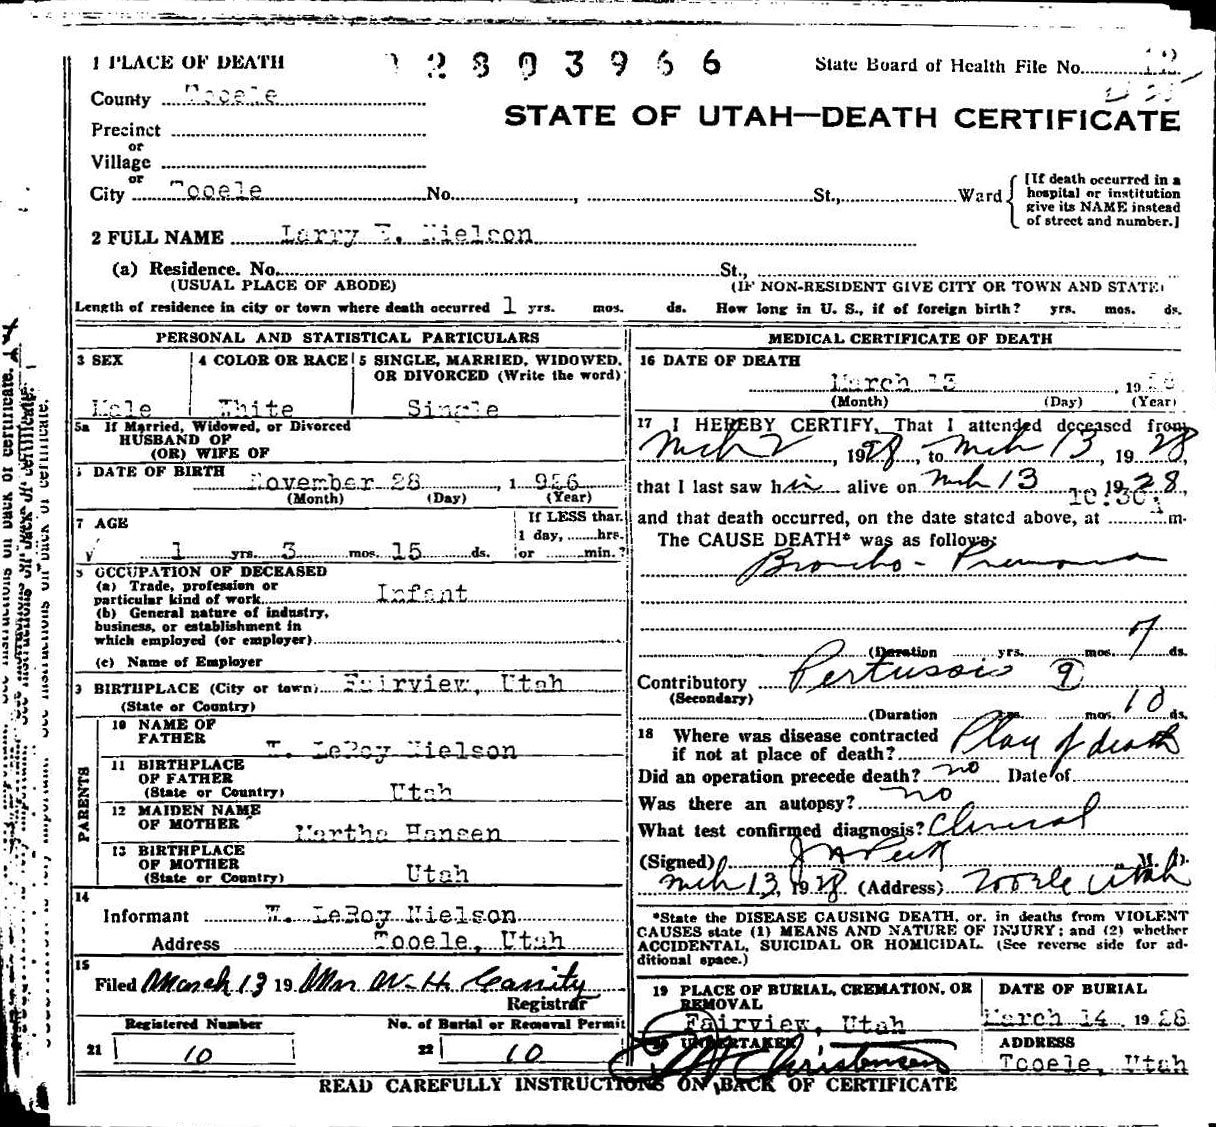 1 PLACE OF DEATH
12803966
State Board of Health File No. 12
County Tooele
STATE OF UTAH—DEATH CERTIFICATE
Precinct
or
Village
or
City Tooele No. , St., Ward
[If death occurred in a
hospital or institution
give its NAME instead
of street and number.]
2 FULL NAME Larry E. Nielson
(a) Residence. No. St.,
(USUAL PLACE OF ABODE) (IF NON-RESIDENT GIVE CITY OR TOWN AND STATE)
Length of residence in city or town where death occurred 1 yrs. mos. ds. How long in U. S., if of foreign birth? yrs. mos. ds.
PERSONAL AND STATISTICAL PARTICULARS
3 SEX
Male
4 COLOR OR RACE
White
5 SINGLE, MARRIED, WIDOWED,
OR DIVORCED (Write the word)
Single
5a If Married, Widowed, or Divorced
HUSBAND OF
(OR) WIFE OF
DATE OF BIRTH
November 28 , 1 926
(Month) (Day) (Year)
7 AGE
1 yrs. 3 mos. 15 ds.
If LESS than
1 day, hrs.
or min.?
OCCUPATION OF DECEASED
(a) Trade, profession or
particular kind of work Infant
(b) General nature of industry,
business, or establishment in
which employed (or employer)
(c) Name of Employer
9 BIRTHPLACE (City or town) Fairview, Utah
(State or Country)
PARENTS
10 NAME OF
FATHER W. LeRoy Nielson
11 BIRTHPLACE
OF FATHER
(State or Country) Utah
12 MAIDEN NAME
OF MOTHER Martha Hansen
13 BIRTHPLACE
OF MOTHER
(State or Country) Utah
14
Informant W. LeRoy Nielson
Address Tooele, Utah
15
Filed March 13 19 Mrs W. H. Cassity
Registrar
Registered Number
21 10
No. of Burial or Removal Permit
22 10
MEDICAL CERTIFICATE OF DEATH
16 DATE OF DEATH
March 13 , 1928
(Month) (Day) (Year)
17 I HEREBY CERTIFY, That I attended deceased from
Mch 2 , 1928, to Mch 13, 1928,
that I last saw him alive on Mch 13 1928,
and that death occurred, on the date stated above, at 10:30 A m.
The CAUSE DEATH* was as follows:
Broncho-Pneumonia
(Duration yrs. mos. 7 ds.
Contributory Pertussis 9
(Secondary)
(Duration yrs. mos. 10 ds.
18 Where was disease contracted
if not at place of death? Place of death
Did an operation precede death? no Date of
Was there an autopsy? no
What test confirmed diagnosis? Clinical
(Signed) J A Peck M. D.
Mch 13, 1928 (Address) Tooele Utah
*State the DISEASE CAUSING DEATH, or, in deaths from VIOLENT
CAUSES state (1) MEANS AND NATURE OF INJURY; and (2) whether
ACCIDENTAL, SUICIDAL OR HOMICIDAL. (See reverse side for ad-
ditional space.)
19 PLACE OF BURIAL, CREMATION, OR
REMOVAL
Fairview, Utah
DATE OF BURIAL
March 14 1928
20 UNDERTAKER
Christensen
ADDRESS
Tooele, Utah
READ CAREFULLY INSTRUCTIONS ON BACK OF CERTIFICATE